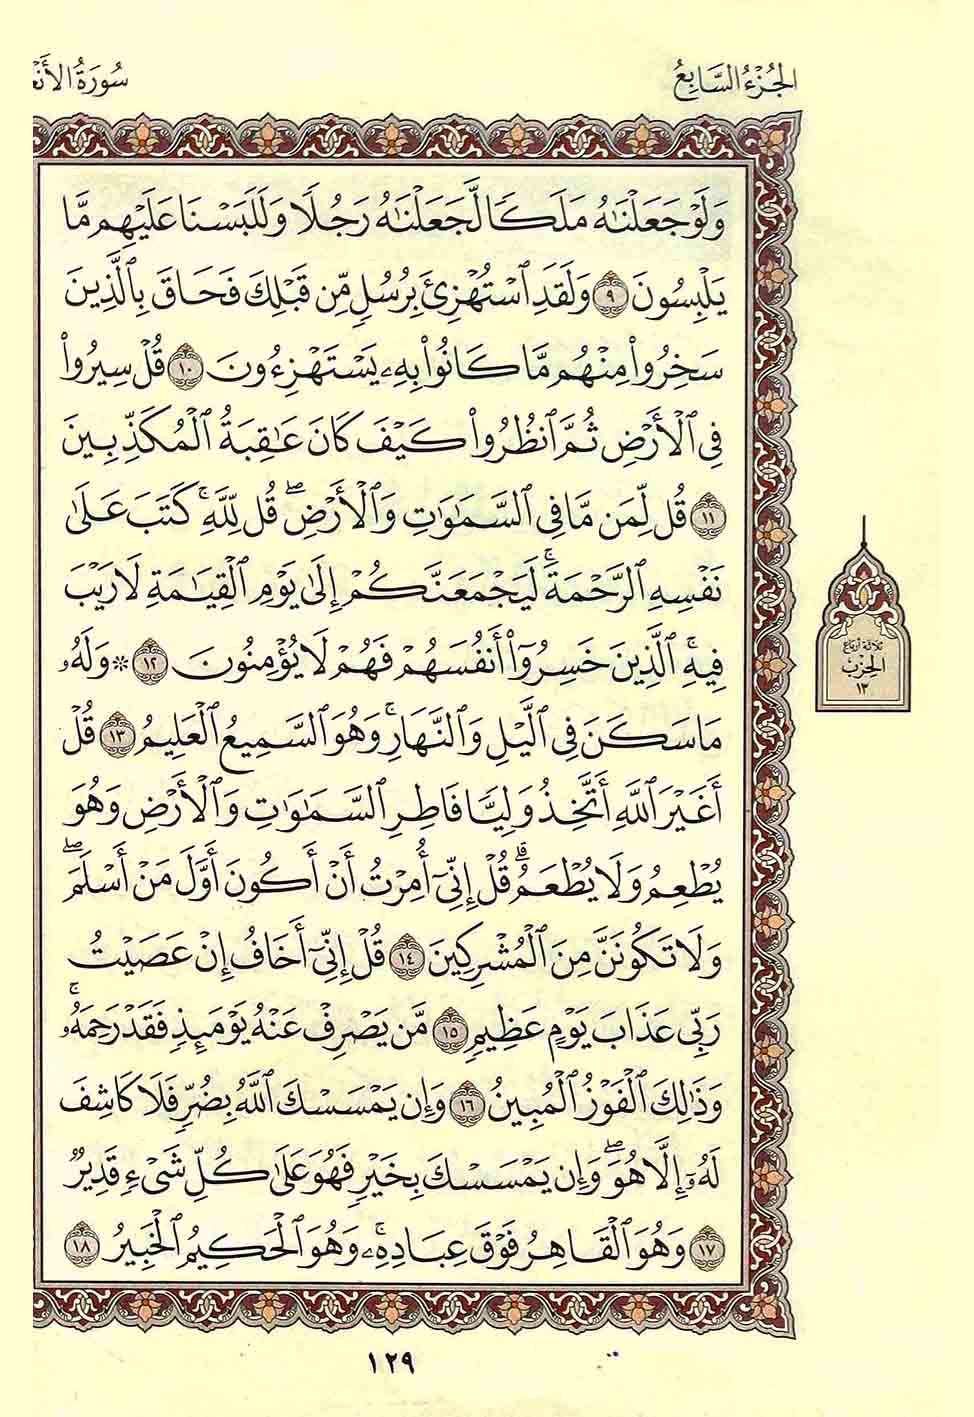 الجُزْءُ السَّابِعُ
سُورَةُ الأَنْعَ
وَلَوْ جَعَلْنَٰهُ مَلَكًا لَّجَعَلْنَٰهُ رَجُلًا وَلَلَبَسْنَا عَلَيْهِم مَّا
يَلْبِسُونَ ٩ وَلَقَدِ ٱسْتُهْزِئَ بِرُسُلٍ مِّن قَبْلِكَ فَحَاقَ بِٱلَّذِينَ
سَخِرُوا۟ مِنْهُم مَّا كَانُوا۟ بِهِۦ يَسْتَهْزِءُونَ ١٠ قُلْ سِيرُوا۟
فِى ٱلْأَرْضِ ثُمَّ ٱنظُرُوا۟ كَيْفَ كَانَ عَٰقِبَةُ ٱلْمُكَذِّبِينَ
١١ قُل لِّمَن مَّا فِى ٱلسَّمَٰوَٰتِ وَٱلْأَرْضِۖ قُل لِّلَّهِۚ كَتَبَ عَلَىٰ
نَفْسِهِ ٱلرَّحْمَةَۚ لَيَجْمَعَنَّكُمْ إِلَىٰ يَوْمِ ٱلْقِيَٰمَةِ لَا رَيْبَ
فِيهِۚ ٱلَّذِينَ خَسِرُوٓا۟ أَنفُسَهُمْ فَهُمْ لَا يُؤْمِنُونَ ١٢ * وَلَهُۥ
مَا سَكَنَ فِى ٱلَّيْلِ وَٱلنَّهَارِۚ وَهُوَ ٱلسَّمِيعُ ٱلْعَلِيمُ ١٣ قُلْ
أَغَيْرَ ٱللَّهِ أَتَّخِذُ وَلِيًّا فَاطِرِ ٱلسَّمَٰوَٰتِ وَٱلْأَرْضِ وَهُوَ
يُطْعِمُ وَلَا يُطْعَمُۗ قُلْ إِنِّىٓ أُمِرْتُ أَنْ أَكُونَ أَوَّلَ مَنْ أَسْلَمَۖ
وَلَا تَكُونَنَّ مِنَ ٱلْمُشْرِكِينَ ١٤ قُلْ إِنِّىٓ أَخَافُ إِنْ عَصَيْتُ
رَبِّى عَذَابَ يَوْمٍ عَظِيمٍ ١٥ مَّن يُصْرَفْ عَنْهُ يَوْمَئِذٍ فَقَدْ رَحِمَهُۥۚ
وَذَٰلِكَ ٱلْفَوْزُ ٱلْمُبِينُ ١٦ وَإِن يَمْسَسْكَ ٱللَّهُ بِضُرٍّ فَلَا كَاشِفَ
لَهُۥٓ إِلَّا هُوَۖ وَإِن يَمْسَسْكَ بِخَيْرٍ فَهُوَ عَلَىٰ كُلِّ شَىْءٍ قَدِيرٌ
١٧ وَهُوَ ٱلْقَاهِرُ فَوْقَ عِبَادِهِۦۚ وَهُوَ ٱلْحَكِيمُ ٱلْخَبِيرُ ١٨
ثلاثة أرباع
الحزب
١٣
١٢٩